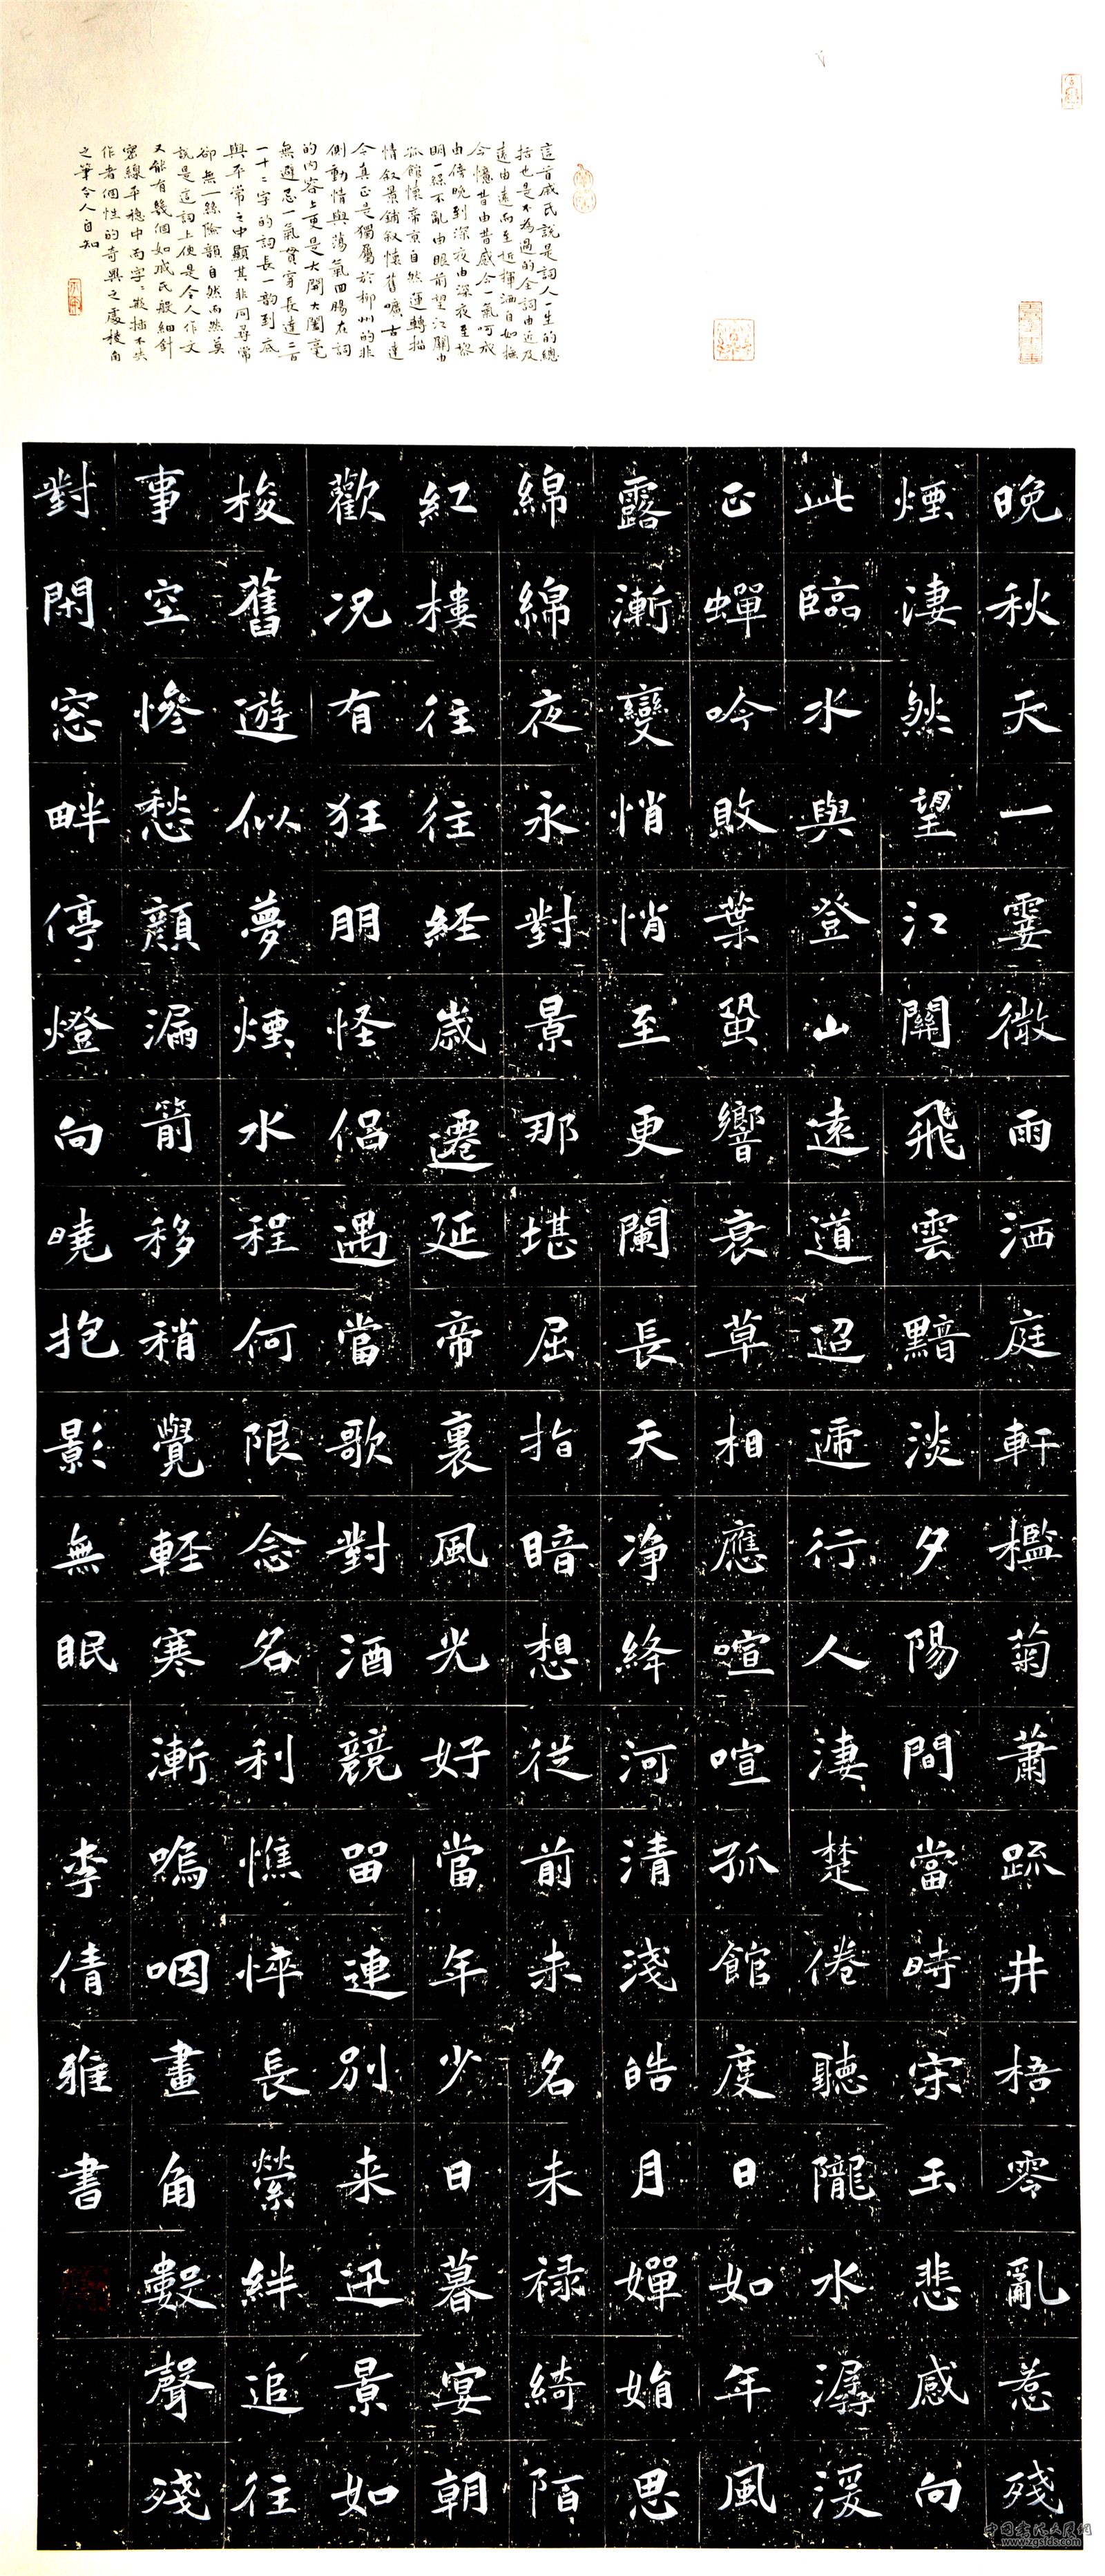 這首戚氏說是詞人一生的總
括也是不為過的全詞由近及
遠由遠而至近揮洒自如撫
今憶昔由昔感今一氣呵成
由傍晚到深夜由深夜至黎
明一絲不亂由眼前望江關由
孤館懷帝京自然運轉描
情叙景鋪叙懷舊曠古達
今真正是獨屬於柳州的非
側動情與蕩氣回腸在詞
的內容上更是大開大闔毫
無避忌一氣貫穿長達二百
一十二字的詞長一韵到底
與不常之中顯其非同尋常
卻無一絲險韻自然而然莫
說是這詞上便是今人作文
又能有幾個如戚氏般細針
密線平穩中而字〻嵌插不失
作者個性的奇興之處稜角
之筆令人自知
晚秋天一霎微雨洒庭軒檻菊蕭疏井梧零亂惹殘
煙淒然望江關飛雲黯淡夕陽間當時宋玉悲感向
此臨水與登山遠道迢遞行人淒楚倦聽隴水潺湲
正蟬吟敗葉蛩響衰草相應喧喧孤館度日如年風
露漸變悄悄至更闌長天淨絳河清淺皓月嬋娟思
綿綿夜永對景那堪屈指暗想從前未名未祿綺陌
紅樓往往經歲遷延帝裏風光好當年少日暮宴朝
歡況有狂朋怪侶遇當歌對酒競留連別来迅景如
梭舊遊似夢煙水程何限念名利憔悴長縈絆追往
事空慘愁顏漏箭移稍覺輕寒漸嗚咽畫角數聲殘
對閑窓畔停燈向曉抱影無眠 李倩雅書
中国书法大展网
www.zgsfds.com